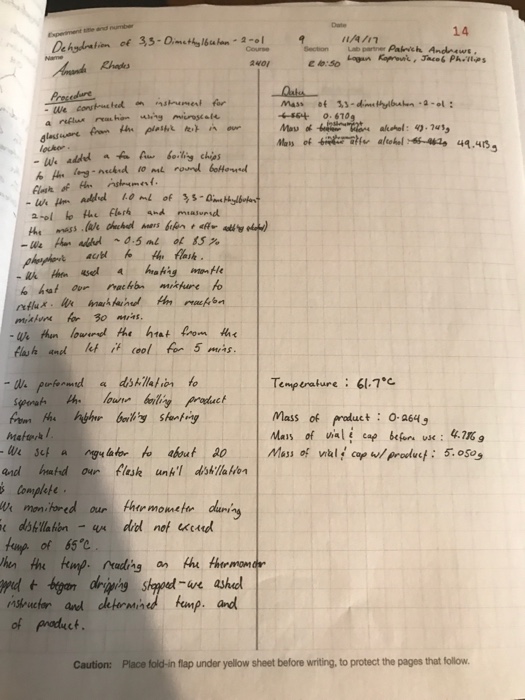 Experiment title and number
Date
14
Dehydration of 3,3-Dimethylbutan-2-ol
9
11/9/17
Name
Course
Section
Lab partner Patrick Andrews,
Amanda Rhodes
2401
@ 10:50
Logan Kaprovic, Jacob Phillips
Procedure
- We constructed an instrument for
a reflux reaction using microscale
glassware from the plastic kit in our
locker.
- We added a few boiling chips
to the long-necked 10 mL round bottomed
flask of the instrument.
- We then added 1.0 mL of 3,3-Dimethylbutan-
2-ol to the flask and measured
the mass. (We checked mass before + after adding alcohol)
- We then added ~0.5 mL of 85%
phosphoric acid to the flask.
- We then used a heating mantle
to heat our reaction mixture to
reflux. We maintained the reaction
mixture for 30 mins.
- We then lowered the heat from the
flask and let it cool for 5 mins.
- We performed a distillation to
seperate the lower boiling product
from the higher boiling starting
material.
- We set a regulator to about 20
and heated our flask until distillation
is complete.
We monitored our thermometer during
distillation - we did not exceed
temp. of 65°C.
When the temp. reading on the thermometer
+ began dripping stopped - we asked
instructor and determined temp. and
of product.
Data
Mass of 3,3-dimethylbutan-2-ol:
0.670g
Mass of instrument before alcohol: 48.743g
Mass of after alcohol 49.413g
Temperature: 61.7°C
Mass of product: 0.264g
Mass of vial & cap before use: 4.786g
Mass of vial & cap w/product: 5.050g
Caution: Place fold-in flap under yellow sheet before writing, to protect the pages that follow.